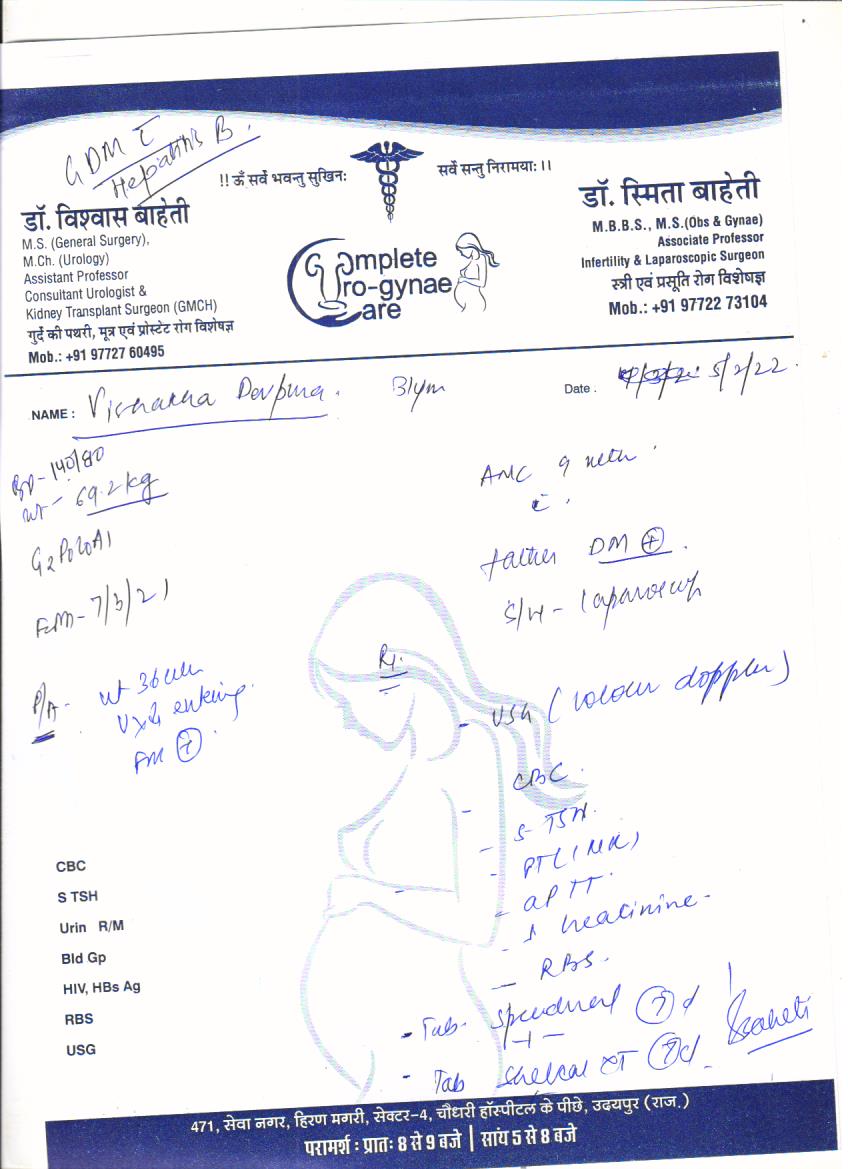 GDM c
Hepatitis B.
!! ॐ सर्वे भवन्तु सुखिनः
सर्वे सन्तु निरामयाः ।।
डॉ. विश्वास बाहेती
M.S. (General Surgery),
M.Ch. (Urology)
Assistant Professor
Consultant Urologist &
Kidney Transplant Surgeon (GMCH)
गुर्दे की पथरी, मूत्र एवं प्रोस्टेट रोग विशेषज्ञ
Mob.: +91 97727 60495
Complete
Uro-gynae
Care
डॉ. स्मिता बाहेती
M.B.B.S., M.S.(Obs & Gynae)
Associate Professor
Infertility & Laparoscopic Surgeon
स्त्री एवं प्रसूति रोग विशेषज्ञ
Mob.: +91 97722 73104
NAME : Devpura .
Date : 5/2/22.
BP - 140/80
Wt - 69.2 kg
G2P0L0A1
7/3/21
P/A -
FM +
9
father DM +
S/H -
Rx.
- USG (colour doppler)
CBC.
- S-TSH.
- PT (INR)
- aPTT.
- S creatinine -
- RBS.
- Tab-
- Tab Shelcal XT
CBC
S TSH
Urin R/M
Bld Gp
HIV, HBs Ag
RBS
USG
471, सेवा नगर, हिरण मगरी, सेक्टर-4, चौधरी हॉस्पीटल के पीछे, उदयपुर (राज.)
परामर्श : प्रातः 8 से 9 बजे | सांय 5 से 8 बजे